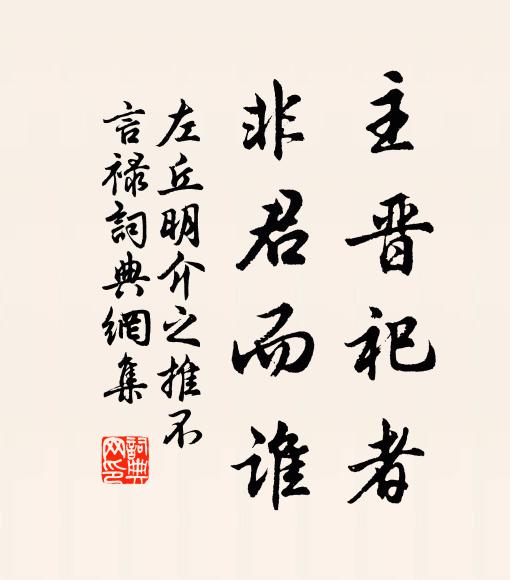 主晋祀者
非君而谁
左丘明介之推不
言禄詞典網集
詞典网印